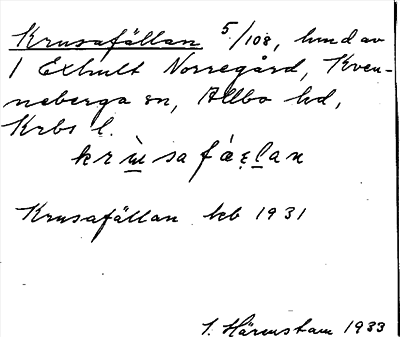 Krusafällan 5/108, hmd av
1 Exhult Norregård, Kven-
neberga sn, Allbo hd,
Krbs l.
krùsafáɛlan
Krusafällan kb 1931
S. Härenstam 1933